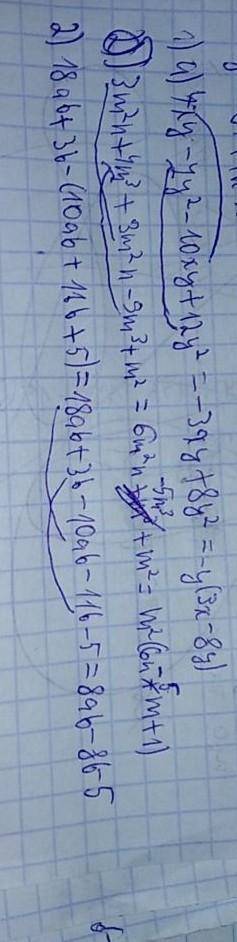 1) а) 7xy - 4y² - 10xy + 12y² = -3xy + 8y² = -y(3x - 8y)
б) 3m²n + 4m³ + 3m²n - 9m³ + m² = 6m²n -5m³ + m² = m²(6n - 5m + 1)
2) 18ab + 3b - (10ab + 11b + 5) = 18ab + 3b - 10ab - 11b - 5 = 8ab - 8b - 5